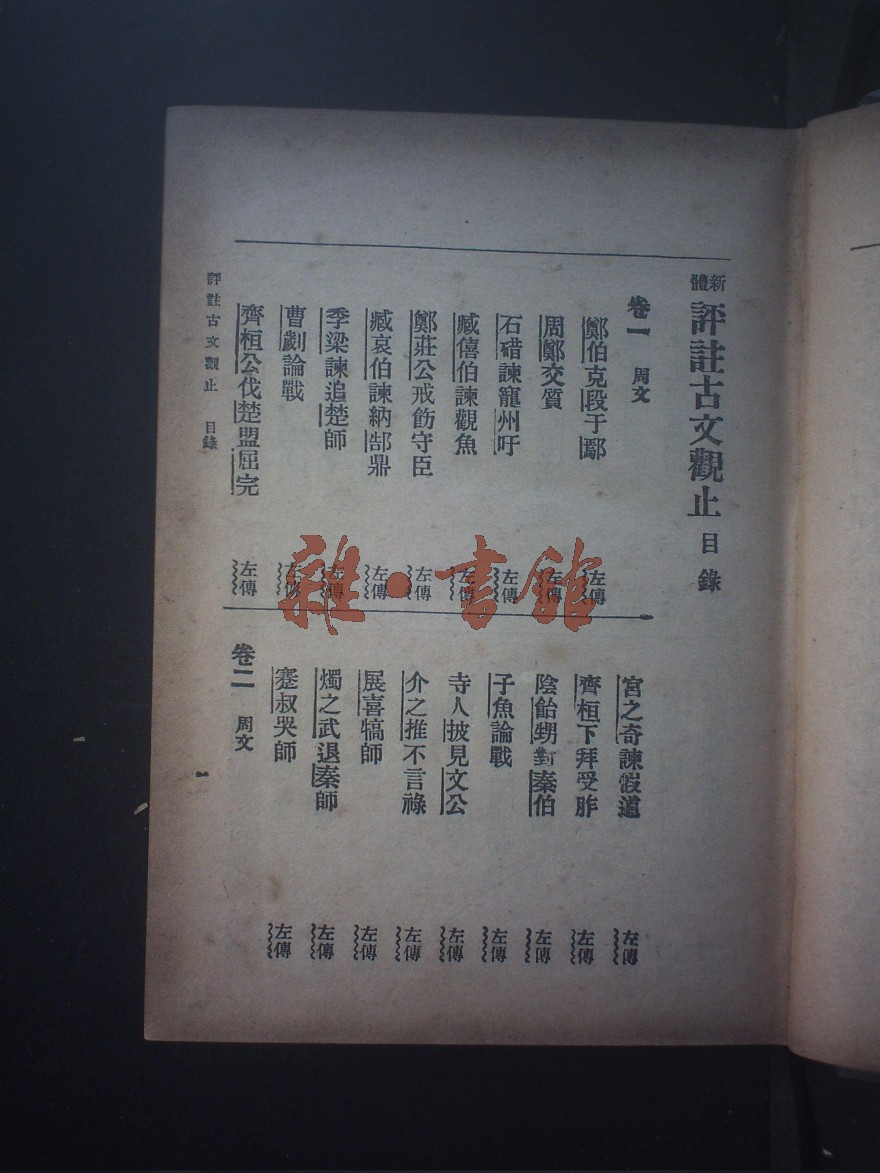 新體評註古文觀止 目錄
卷一 周文
鄭伯克段于鄢 左傳
周鄭交質 左傳
石碏諫寵州吁 左傳
臧僖伯諫觀魚 左傳
鄭莊公戒飭守臣 左傳
臧哀伯諫納郜鼎 左傳
季梁諫追楚師 左傳
曹劌論戰 左傳
齊桓公伐楚盟屈完 左傳
宮之奇諫假道 左傳
齊桓下拜受胙 左傳
陰飴甥對秦伯 左傳
子魚論戰 左傳
寺人披見文公 左傳
介之推不言祿 左傳
展喜犒師 左傳
燭之武退秦師 左傳
蹇叔哭師 左傳
卷二 周文
評註古文觀止 目錄
雜·書館